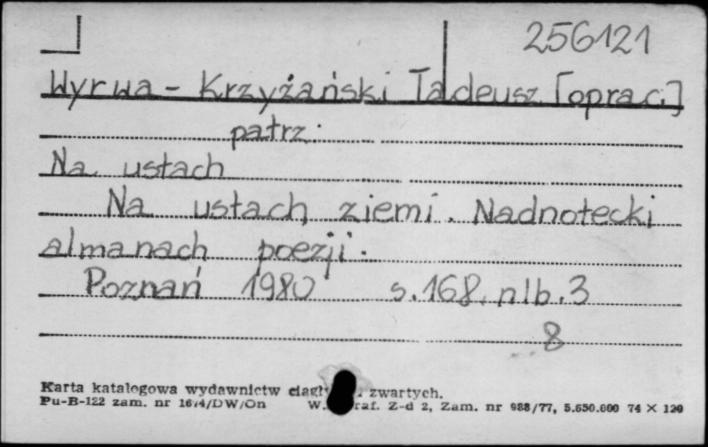 256121
Wyrwa - Krzyżański Tadeusz [oprac.]
patrz:
Na ustach
Na ustach ziemi. Nadnotecki
almanach poezji.
Poznań 1980 s. 168, nlb. 3
8
Karta katalogowa wydawnictw zwartych.
Pu-B-122 zam. nr W. Z-d 2, Zam. nr 988/77, 5.650.000 74 × 120